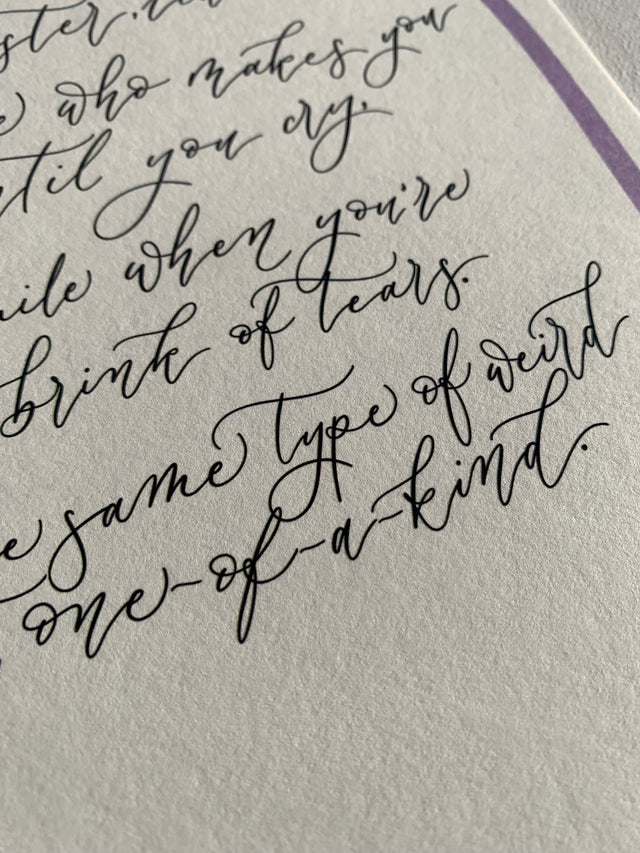 who makes you
you cry.
when you're
brink of tears.
same type of weird
one-of-a-kind.